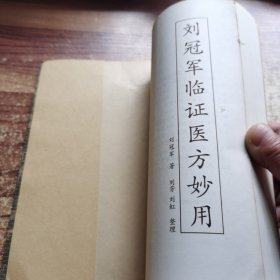 刘冠军临证医方妙用
刘冠军 著
刘芳 刘虹 整理